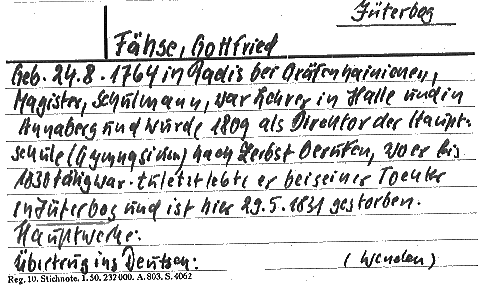 Jüterbog
Fähse, Gottfried
Geb. 24.8.1764 in Radis bei Gräfenhainichen,
Magister, Schulmann, war Lehrer in Halle und in
Annaberg und wurde 1809 als Direktor der Haupt-
schule (Gymnasium) nach Zerbst berufen, wo er bis
1830 tätig war. Zuletzt lebte er bei seiner Tochter
in Jüterbog und ist hier 29.5.1831 gestorben.
Hauptwerke:
Übertrug ins Deutsche: (Wenden)
Reg. 10. Stichnote. I. 50. 232000. A. 803. S. 4062